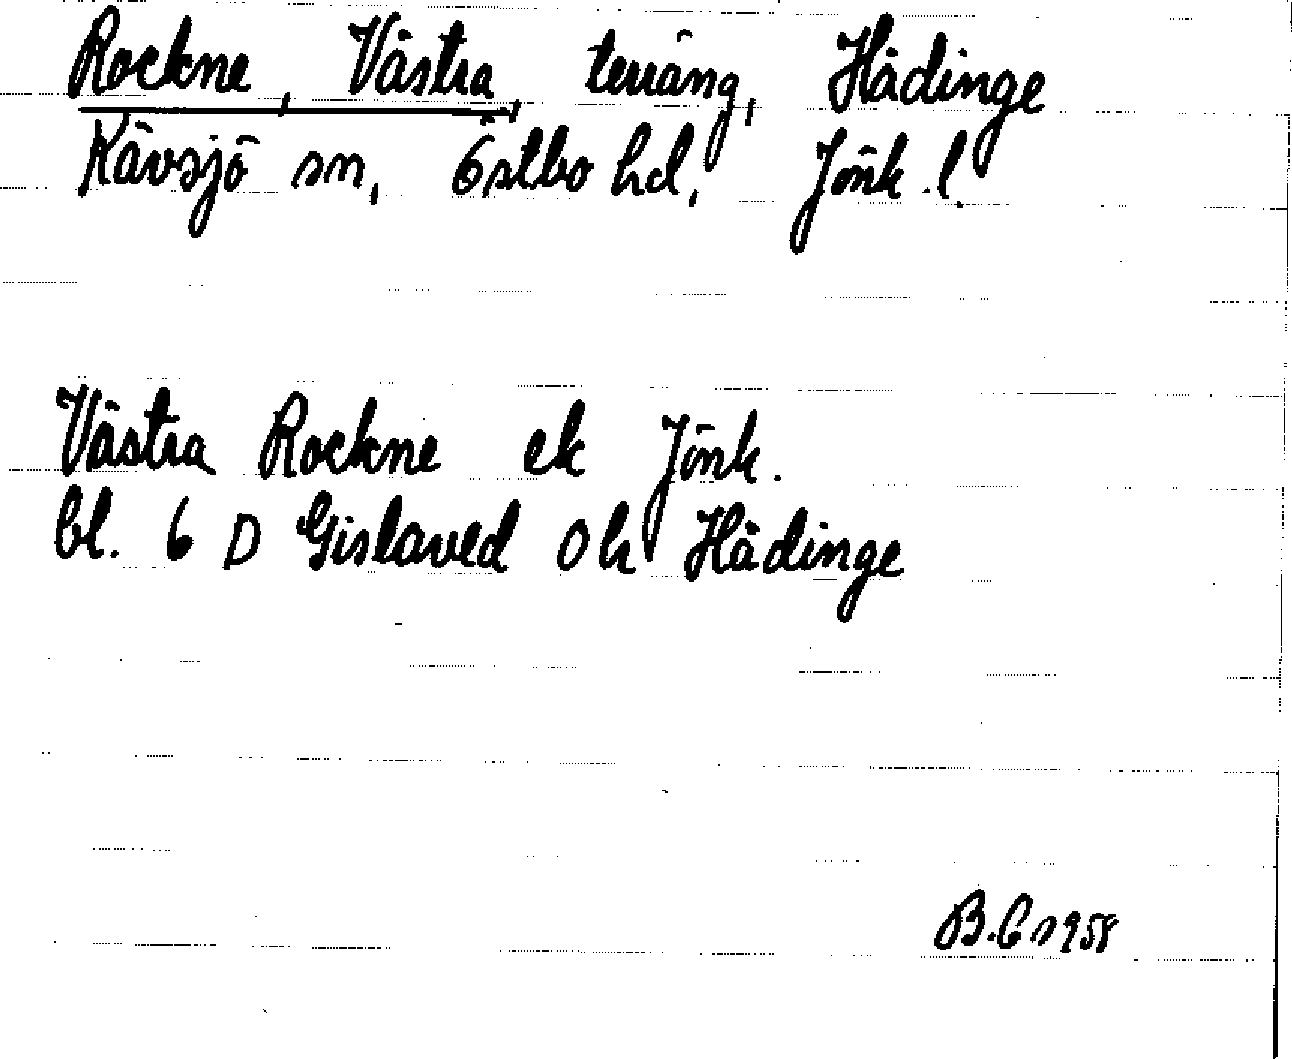 Rockne, Västra, terräng, Hädinge
Kävsjö sn, Östbo hd, Jönk. l.
Västra Rockne ek Jönk.
bl. 6 D Gislaved oh Hädinge
B.C 1958